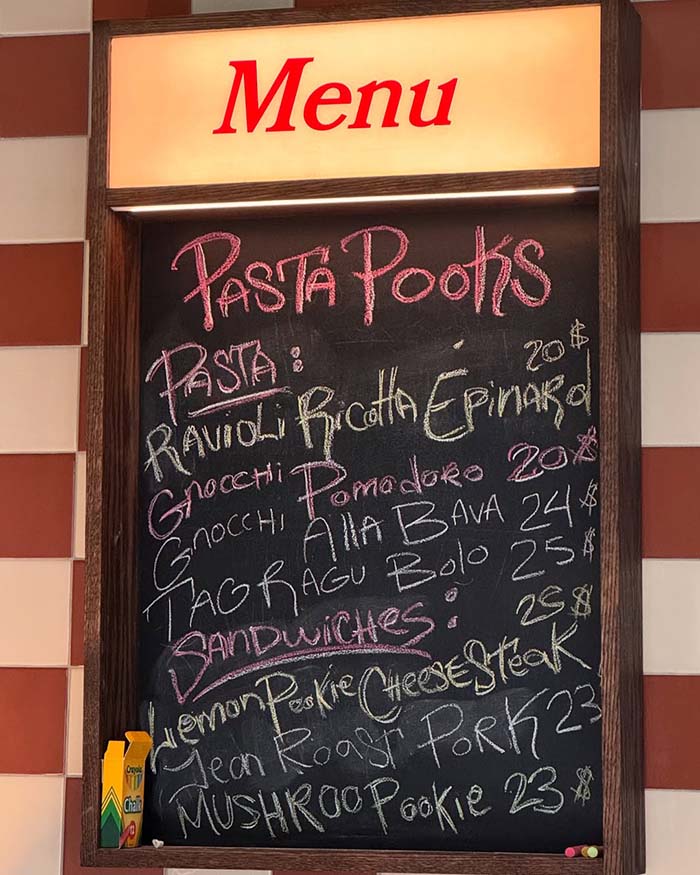 Menu
PASTA POOKS
PASTA:
20$
RAVIOLI RicottA ÉPiNARd
Gnocchi Pomodoro 20$
GNOCCHI Alla BAVA 24$
TAG RAGU Bolo 25$
SANDWiCHES: 25$
Lemon Pookie CHEESESteaK
Jean Roast PORK 23
MUSHROOPookie 23$
Crayola
Chalk
12